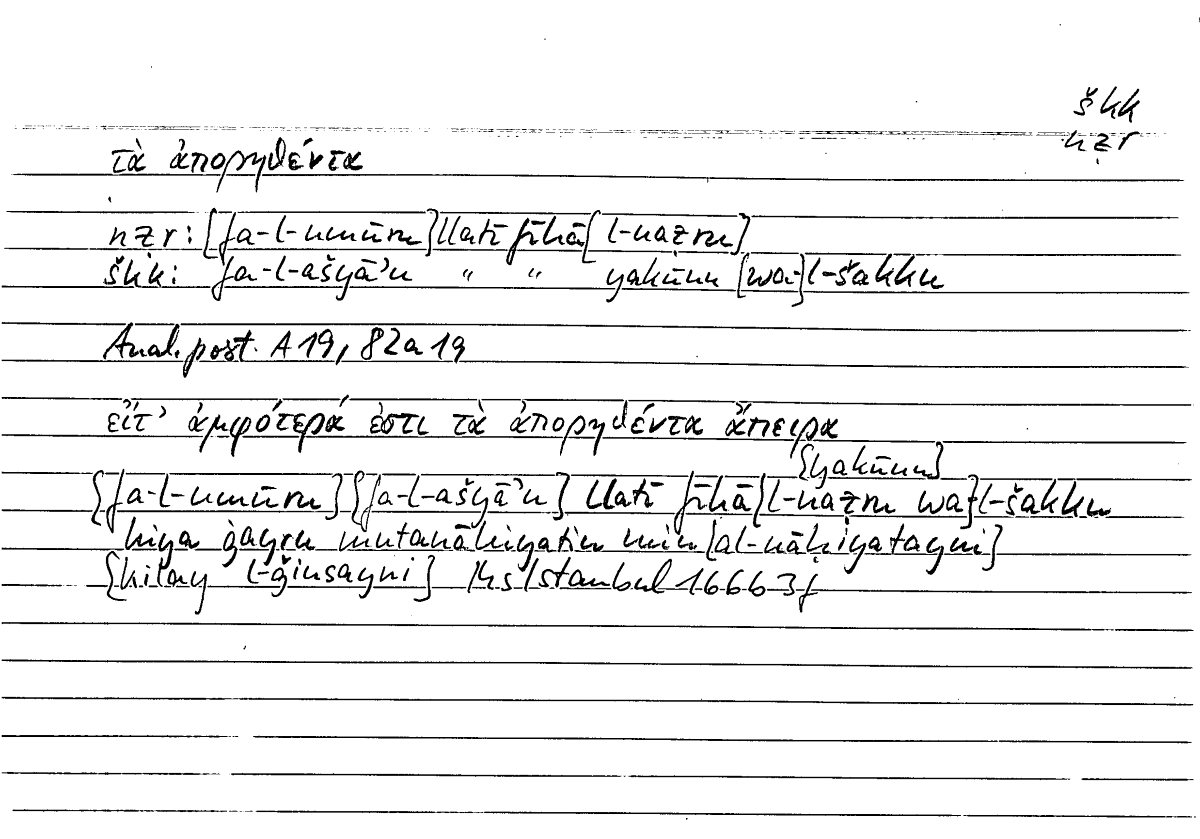 škk
nẓr
τὰ ἀπορηθέντα
nẓr: [fa-l-umūru] llatī fīhā [l-naẓru]
škk: fa-l-ašyāʾu " " yakūnu [wa-]l-šakku
Anal. post. A 19, 82a19
εἴτ' ἀμφότερά ἐστι τὰ ἀπορηθέντα ἄπειρα
{yakūnu}
{fa-l-umūru} {fa-l-ašyāʾu} llatī fīhā {l-naẓru wa-}l-šakku
hiya ġayru mutanāhiyatin min [al-nāḥiyatayni]
{kilay l-ǧinsayni} Ms Istanbul 1666 3f